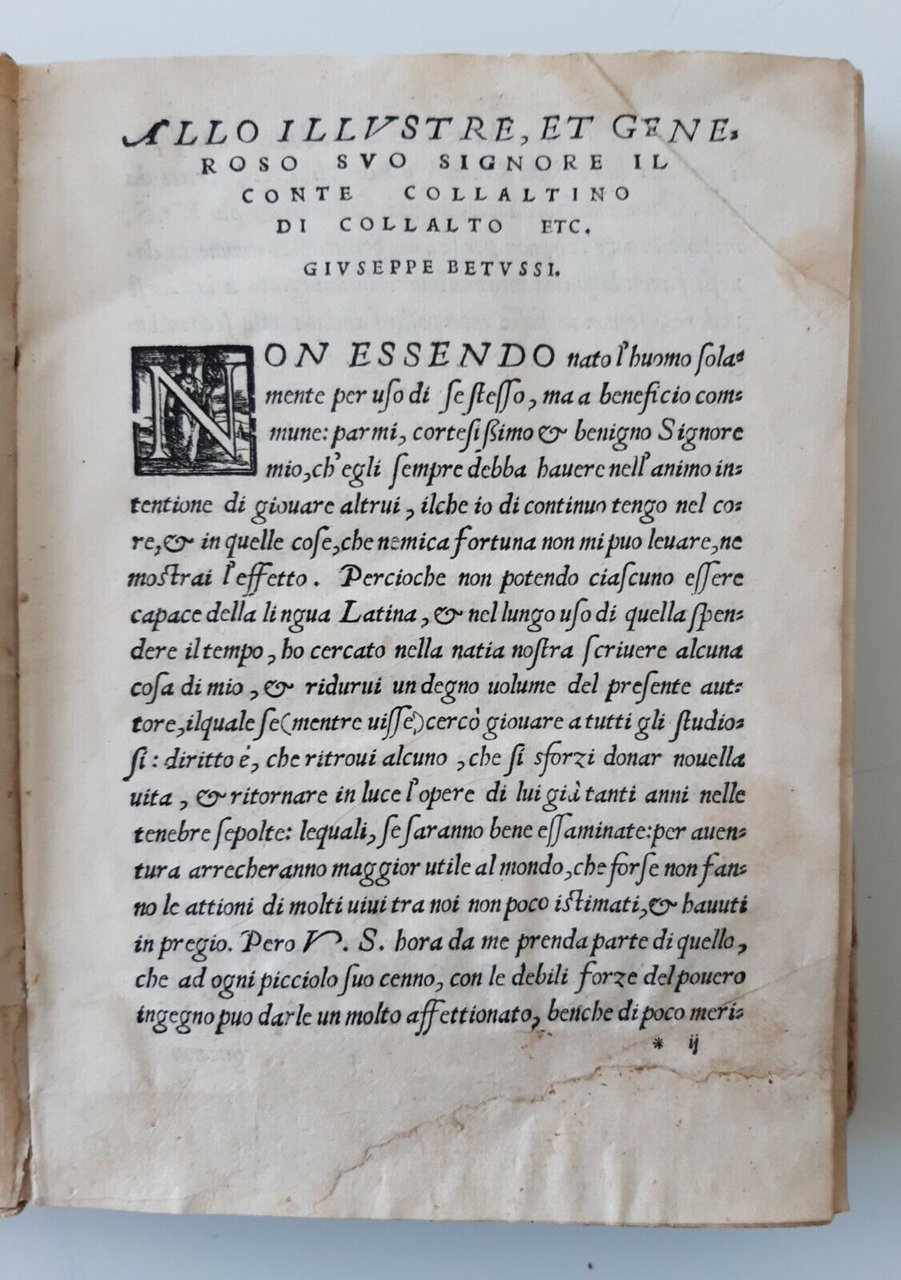 ALLO ILLVSTRE, ET GENE-
ROSO SVO SIGNORE IL
CONTE COLLALTINO
DI COLLALTO ETC.
GIVSEPPE BETVSSI.
NON ESSENDO nato l'huomo sola-
mente per uſo di ſe ſteſſo, ma a beneficio com-
mune: parmi, corteſißimo & benigno Signore
mio, ch'egli ſempre debba hauere nell'animo in-
tentione di giouare altrui, ilche io di continuo tengo nel co-
re, & in quelle coſe, che nemica fortuna non mi puo leuare, ne
moſtrai l'effetto. Percioche non potendo ciaſcuno eſſere
capace della lingua Latina, & nel lungo uſo di quella ſpen-
dere il tempo, ho cercato nella natia noſtra ſcriuere alcuna
coſa di mio, & ridurui un degno uolume del preſente aut-
tore, ilquale ſe (mentre uiſſe) cercò giouare a tutti gli ſtudio-
ſi: diritto é, che ritroui alcuno, che ſi sforzi donar nouella
uita, & ritornare in luce l'opere di lui già tanti anni nelle
tenebre ſepolte: lequali, ſe ſaranno bene eſſaminate: per auen-
tura arrecheranno maggior utile al mondo, che forſe non fan-
no le attioni di molti uiui tra noi non poco iſtimati, & hauuti
in pregio. Pero V. S. hora da me prenda parte di quello,
che ad ogni picciolo ſuo cenno, con le debili forze del pouero
ingegno puo darle un molto affettionato, benche di poco meri-
* ij